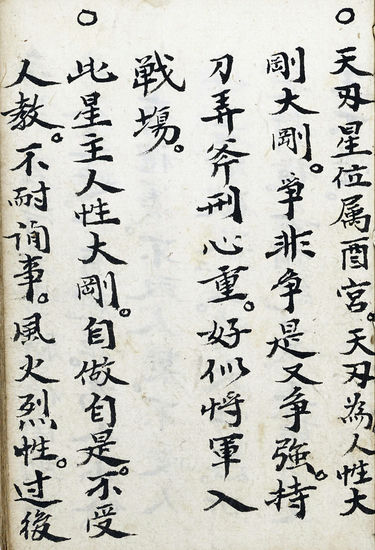 ○天刄星位属酉宮。天刄為人性大
剛大剛。爭非争是又争強。持
刀弄斧刑心重。好似將軍入
戦塲。
○此星主人性大剛。自做自是。不受
人教。不耐詢事。風火烈性。过後